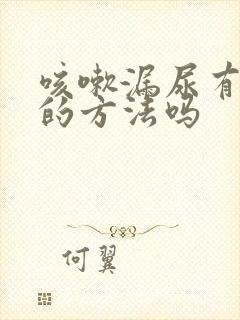 咳嗽漏尿有
的方法吗
何翼